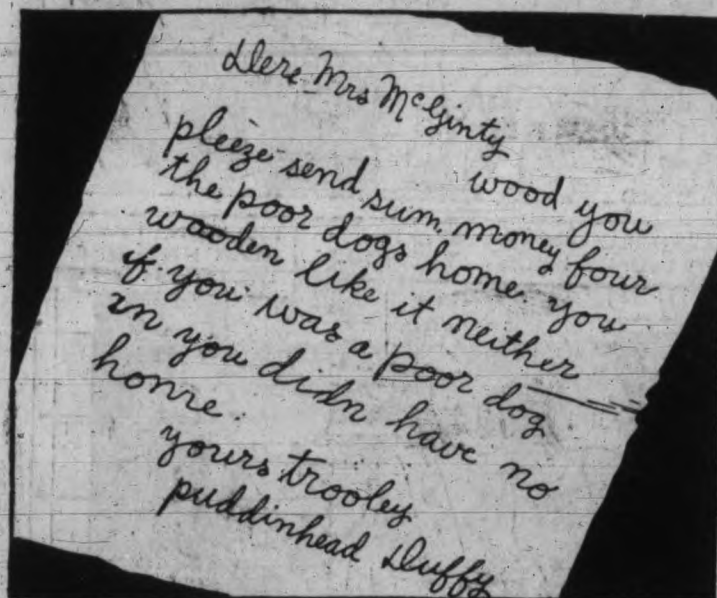 Dere Mrs McGinty
wood you
pleeze send sum money four
the poor dogs home. you
wooden like it neither
if you was a poor dog
an you didn have no
home.
yours trooley
puddinhead Duffy